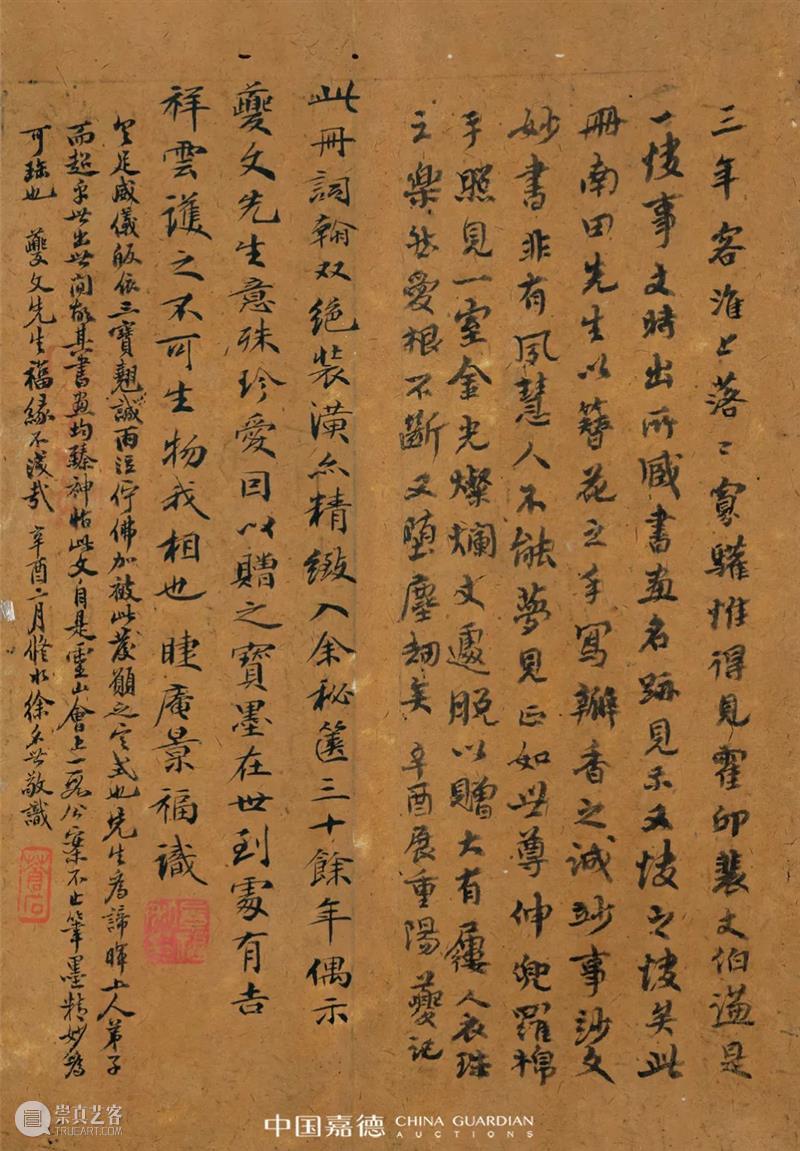 三年客淮上落〻寡驩惟得見霍卯裴丈伯謙是
一快事丈時出所臧書畫名跡見示又快之快矣此
冊南田先生以簪花之手寫瓣香之誠妙事妙文
妙書非有夙慧人不能夢見正如世尊伸兜羅棉
手照見一室金光燦爛丈遽脫以贈大有屢人衣珠
之樂然愛根不斷又墮塵劫矣 辛酉展重陽 夔記
此冊詞翰双絕裝潢亦精緻入余秘篋三十餘年偶示
夔文先生意殊珍愛因以贈之寶墨在世到處有吉
祥雲護之不可生物我相也 睫庵景福識
具足威儀皈依三寶翹誠雨泣佇佛加被此發願之定式也先生為諦暉上人弟子
而超乎世出世間故其書畫均臻神怡此文自是靈山會上一段公案不止筆墨精妙為
可珍也 夔文先生福緣不淺哉 辛酉二月修水徐 敬識
中国嘉德 CHINA GUARDIAN
AUCTIONS
崇真艺客
TRUEART.COM